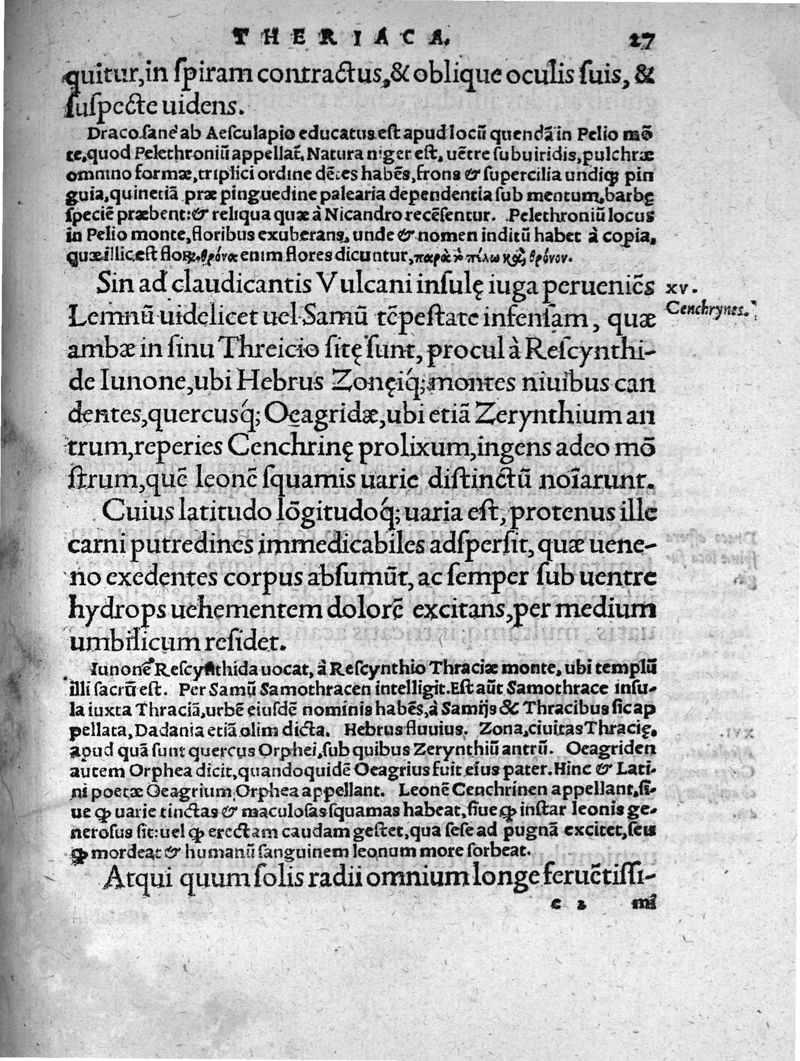 THERIACA. 27
quitur, in spiram contractus, & oblique oculis suis, &
suspecte uidens.
Draco sane ab Aesculapio educatus est apud locū quendā in Pelio mō
te, quod Pelethroniū appellat̄. Natura niger est, uētre subuiridis, pulchræ
omnino formæ, triplici ordine dētes habēs, frons & supercilia undiq; pin
guia, quinetiā præ pinguedine palearia dependentia sub mentum, barbę
speciē præbent: & reliqua quæ à Nicandro recēsentur. Pelethroniū locus
in Pelio monte, floribus exuberans, unde & nomen inditū habet à copia,
quæ illic est enim flores dicuntur,
Sin ad claudicantis Vulcani insulę iuga perueniēs xv.
Lemnū uidelicet uel Samū tēpestate infensam, quæ Cenchrynes.
ambæ in sinu Threicio sitę sunt, procul à Rescynthi-
de Iunone, ubi Hebrus Zonęiq́; montes niuibus can
dentes, quercusq́; Oeagridæ, ubi etiā Zerynthium an
trum, reperies Cenchrinę prolixum, ingens adeo mō
strum, quē leonē squamis uarie distinctū noīarunt.
Cuius latitudo lōgitudoq́; uaria est, protenus ille
carni putredines immedicabiles adspersit, quæ uene-
no exedentes corpus absumūt, ac semper sub uentre
hydrops uehementem dolorē excitans, per medium
umbilicum residet.
Iunonē Rescynthida uocat, à Rescynthio Thraciæ monte, ubi templū
illi sacrū est. Per Samū Samothracen intelligit. Est aūt Samothrace insu-
la iuxta Thraciā, urbē eiusdē nominis habēs, à Samijs & Thracibus sic ap
pellata, Dadania etiā olim dicta. Hebrus fluuius. Zona, ciuitas Thracię,
apud quā sunt quercus Orphei, sub quibus Zerynthiū antrū. Oeagriden
autem Orphea dicit, quandoquidē Oeagrius fuit eius pater. Hinc & Lati-
ni poetæ Oeagrium Orphea appellant. Leonē Cenchrinen appellant, si-
ue ꝙ uarie tinctas & maculosas squamas habeat, siue ꝙ instar leonis ge-
nerosus sit: uel ꝙ erectam caudam gestet, qua sese ad pugnā excitet, seu
ꝙ mordeat & humanū sanguinem leonum more sorbeat.
Atqui quum solis radii omnium longe feruētissi-
c 2 mi